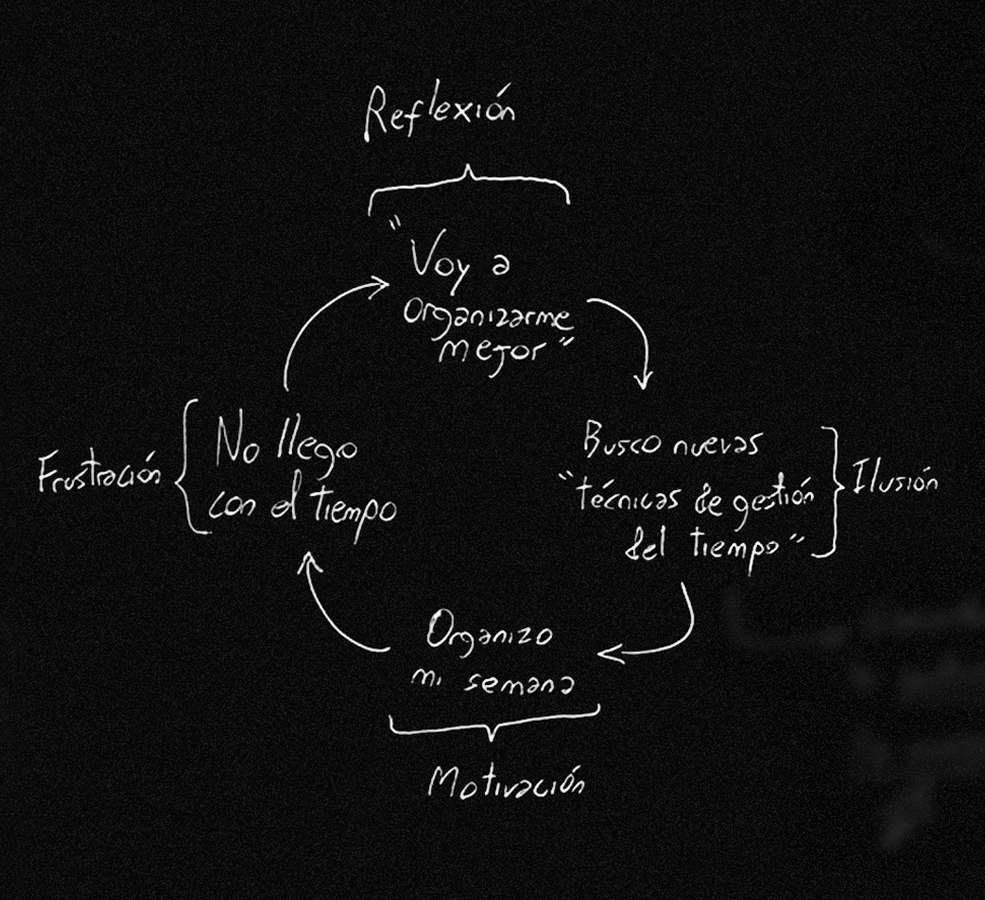 Reflexión
"Voy a
organizarme
mejor"
Busco nuevas
"técnicas de gestión
del tiempo"
Ilusión
Organizo
mi semana
Motivación
No llego
con el tiempo
Frustración